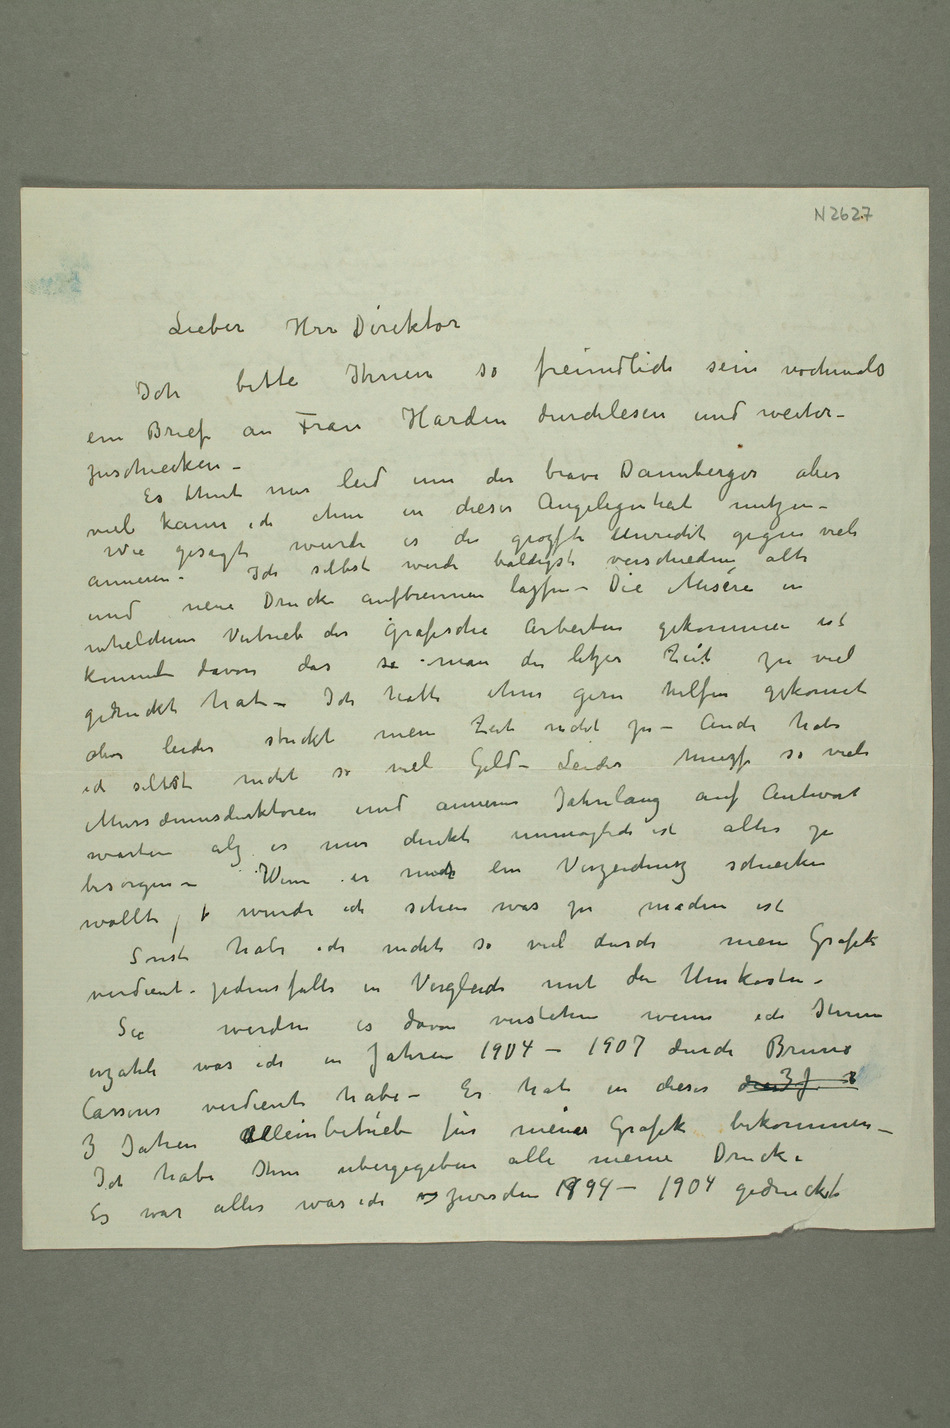 N 2627
Lieber Herr Direktor
Ich bitte Ihnen so freundlich sein nochmals
ein Brief an Frau Harden durchlesen und weiter–
zuschiecken –
Es thut mir leid um der brave Dannberger aber
viel kann ich ihm in dieser Angelegenheit nutzen –
Wie gesagt wurde es der grozfte Unrecht gegen viele
anneren – Ich selbst werde baldigst verschiedene alte
und neue Drucke aufbrennen lazfen – Die Misére in
whelchem Vertrieb der Grafische Arbeiten gekommen ist
kommt davon das se man der letzer Zeit zu viel
gedruckt hat – Ich hatte ihm gern helfen gekonnt
aber leider streckt mein Zeit nicht zu – Auch habe
ich selbst nicht so viel Geld – Leider muzf so viele
Musæumsdirktoren und annerer Jahrelang auf Antwort
warten alz es mir direkt unmoglich ist alles zu
besorgen – Wenn er mich ein Verzeichnisz schiecken
wollte, wurde ich sehen was zu machen ist
Sonst habe ich nicht so viel durch mein Grafik
verdient – jedenfalls in Vergleich mit den Unkosten –
Sie werden es davon verstehen wenn ich Ihnen
erzahle was ich in Jahren 1904 – 1907 durch Bruno
Cassirer verdient habe – Er hat in dieser die 3 J
3 Jahren Alleinbetrieb für meine Grafik bekommen –
Ich habe Ihm ubergegeben alle meine Drucke
Es war alles was ich zwischen 1894 – 1904 gedruckt